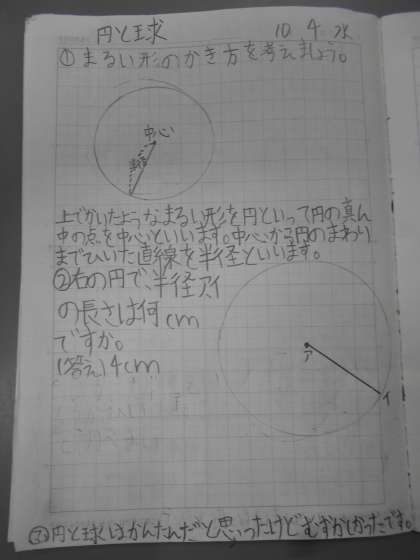 円と球 10 4 水
①まるい形のかき方を考えましょう。
中心
半径
上でかいたようなまるい形を円といって円の真ん
中の点を中心といいます。中心から円のまわり
までひいた直線を半径といいます。
②右の円で、半径アイ
の長さは何cm
ですか。
(答え)4cm
ア
イ
円と球はかんたんだと思ったけどむずかしかったです。